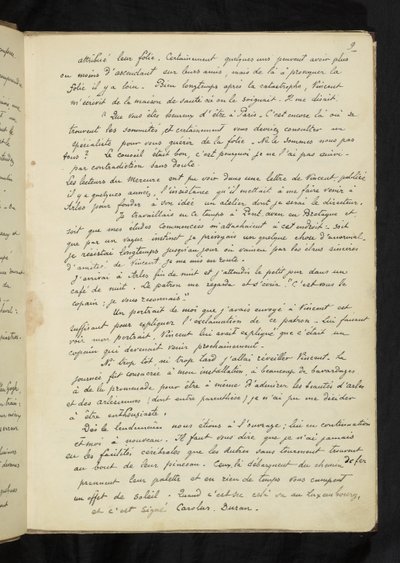 9
attribué leur folie. Certainement quelques uns peuvent avoir plus
ou moins d'ascendant sur leurs amis, mais de là à provoquer la
folie il y a loin. Bien longtemps après la catastrophe, Vincent
m'écrivit de la maison de santé où on le soignait. Il me disait.
" Que vous êtes heureux d'être à Paris. C'est encore là où se
trouvent les sommités et certainement vous devriez consulter un
spécialiste pour vous guérir de la folie. Ne le sommes nous pas
tous? Le conseil était bon, c'est pourquoi je ne l'ai pas suivi.
par contradiction sans doute.
Les lecteurs du Mercure ont pu voir dans une lettre de Vincent, publiée
il y a quelques années, l'insistance qu'il mettait à me faire venir à
Arles pour fonder à son idée un atelier dont je serai le directeur.
Je travaillais en ce temps à Pont-aven en Bretagne et
soit que mes études commencées m'attachaient à cet endroit. soit
que par un vague instinct je prévoyais un quelque chose d'anormal,
je résistai longtemps jusqu'au jour où vaincu par les élans sincères
d'amitié de Vincent, je me mis en route.
J'arrivai à Arles fin de nuit et j'attendis le petit jour dans un
café de nuit. Le patron me regarda et s'écria. "C'est vous le
copain; je vous reconnais"
Un portrait de moi que j'avais envoyé à Vincent est
suffisant pour expliquer l'exclamation de ce patron. Lui faisant
voir mon portrait, Vincent lui avait expliqué que c'était un
copain qui devait venir prochainement.
Ni trop tôt ni trop tard j'allai réveiller Vincent. La
journée fut consacrée à mon installation, à beaucoup de bavardages
à de la promenade pour être à même d'admirer les beautés d'arles
et des arlésiennes (dont entre parenthèse) je n'ai pu me décider
à être enthousiaste.
Dès le lendemain nous étions à l'ouvrage; lui en continuation
et moi à nouveau. Il faut vous dire que je n'ai jamais
eu les facilités cérébrales que les autres sans tourment trouvent
au bout de leur pinceau. Ceux là débarquent du chemin de fer
prennent leur palette et en rien de temps vous campent
un effet de soleil. Quand c'est sec cela va au Luxembourg,
et c'est signé. Carolus. Duran.